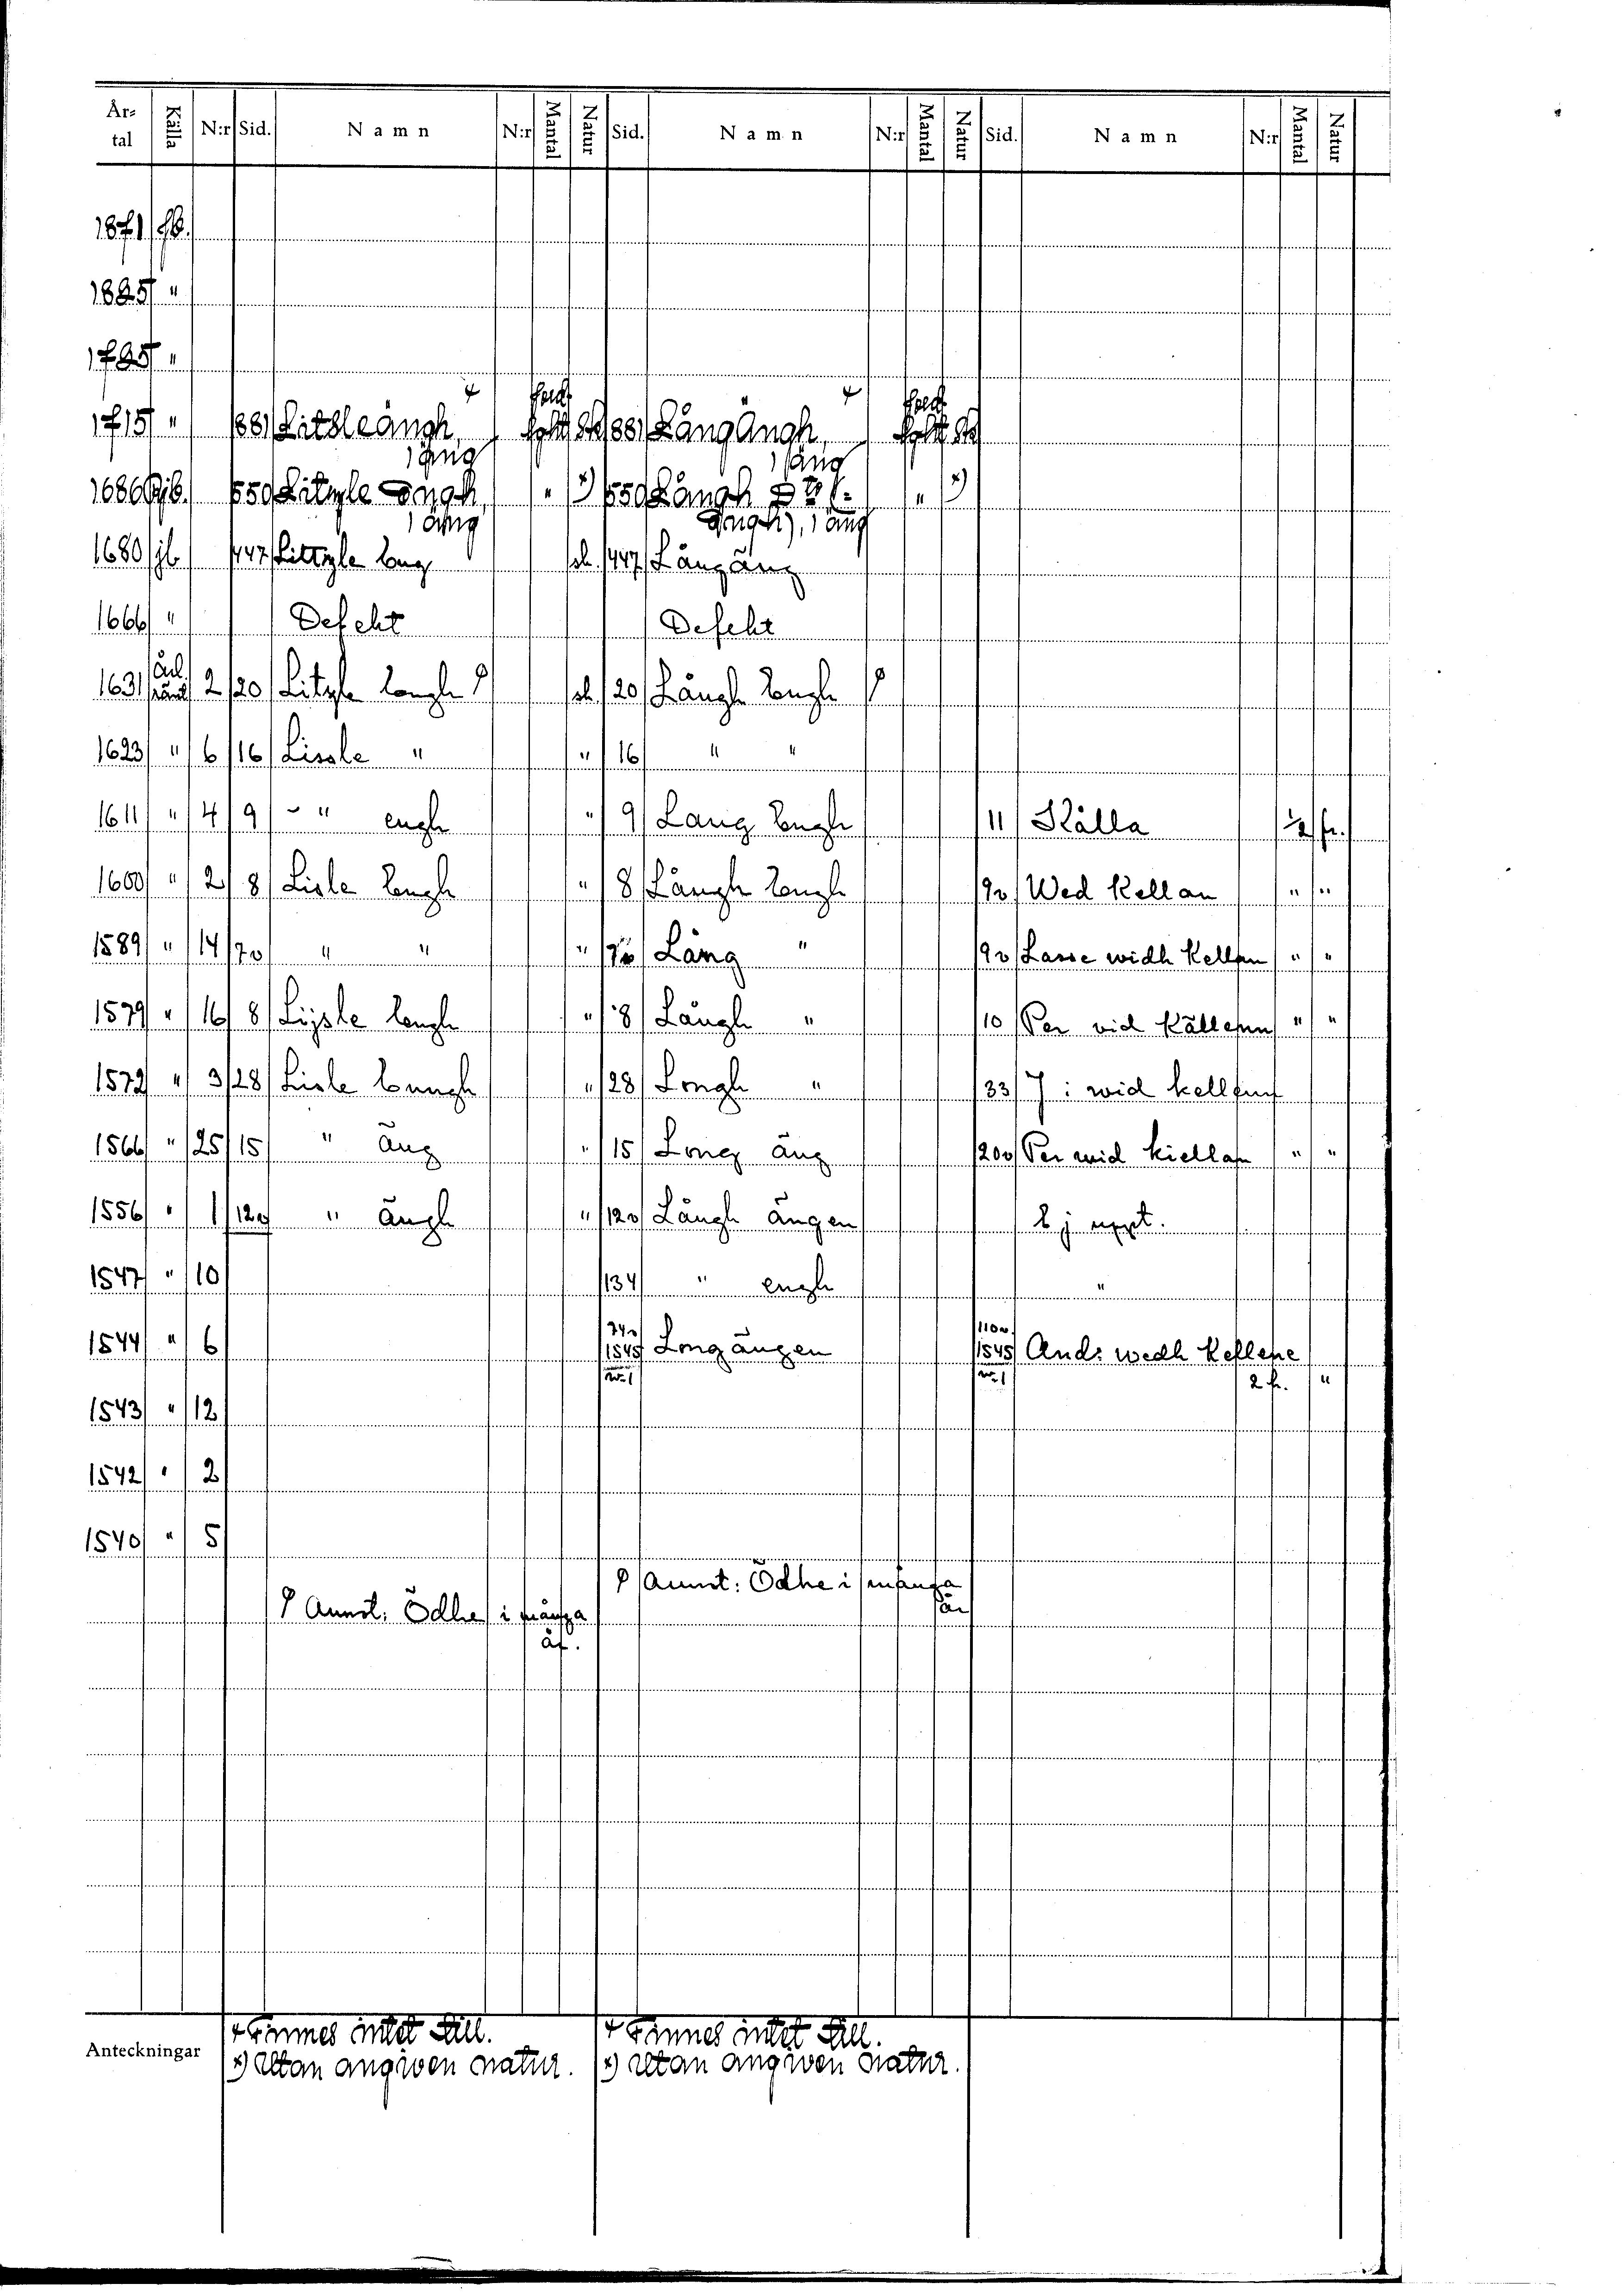 År-tal Källa N:r Sid. Namn N:r Mantal Natur Sid. Namn N:r Mantal Natur Sid. Namn N:r Mantal Natur
1871 jb.
1825 "
1795 "
1715 " 881 Litsleängh, 881 Långängh,
1 äng 1 äng
1686 550 Litzle Engh, " *) 550 Långh " *)
1 äng engh), 1 äng
1680 jb 447 Littzle Eng sk. 447 Långäng
1666 " Defekt Defekt
1631 2 20 Litzle Eengh sk. 20 Långh Eengh
1623 " 6 16 Lissle " " 16 " "
1611 " 4 9 - " engh " 9 Lang Eengh 11 Källa 1/2 fr.
1600 " 2 8 Lisle Eengh " 8 Långh Eengh 9v Wed Kellan " "
1589 " 14 7v " " " 7v Lång " 9v Lasse widh Kellan " "
1579 " 16 8 Lijsle Eengh " 8 Långh " 10 Per vid Källenn " "
1572 " 3 28 Lisle Eenngh " 28 Longh " 33 J: wid kellenn
1566 " 25 15 " äng " 15 Long äng 20v Per wid kiellan " "
1556 " 1 12v " ängh " 12v Långh ängen Ej uppt.
1547 " 10 134 " engh "
1544 " 6 74v 1545 nr 1 Longängen 110v 1545 nr 1 And: wedh Kellene
2 fr. "
1543 " 12
1542 " 2
1540 " 5
Annot: Ödhe i många
år
Annot: Ödhe i många
år.
Anteckningar
+ Finnes intet till. + Finnes intet till.
*) Utan angiven natur. *) Utan angiven natur.